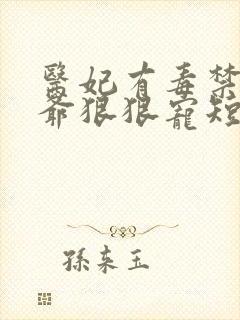 醫妃有毒禁
爺狠狠寵短
孫來玉